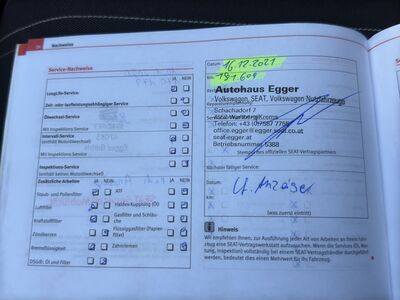 Nachweise
Service-Nachweise
JA NEIN
LongLife-Service
Zeit- oder laufleistungsabhängiger Service
Ölwechsel-Service
Mit Inspektions-Service
Intervall-Service
(enthält Motorölwechsel)
Mit Inspektions-Service
Inspektions-Service
(enthält keinen Motorölwechsel)
Zusätzliche Arbeiten JA NEIN JA NEIN
Staub- und Pollenfilter ATF
Luftfilter Haldex-Kupplung (Öl)
Kraftstofffilter Gasfilter und Schläuche
Zündkerzen Flüssiggasfilter (Papierfilter)
Bremsflüssigkeit Zahnriemen
DSG®: Öl und Filter
Datum: 16.12.2021
km: 191.609
Autohaus Egger
Volkswagen, SEAT, Volkswagen Nutzfahrzeuge
Schachadorf 7
4552 Wartberg/Krems
Telefon: +43 (0)7587 7758
office.egger@egger.seat.co.at
seat-egger.at
Betriebsnummer 5388
Stempel des offiziellen SEAT-Vertragspartners
Nächster fälliger Service:
Datum: lt. Anzeige
(was zuerst eintritt)
Hinweis
Wir empfehlen Ihnen, zur Ausführung jeder Art von Arbeiten an Ihrem Fahrzeug eine SEAT-Vertragswerkstatt aufzusuchen. Wenn die Services (Öl, Wartung, Inspektion) vollständig bei einem SEAT-Vertragshändler durchgeführt werden, bedeutet dies einen Mehrwert für Ihr Fahrzeug.